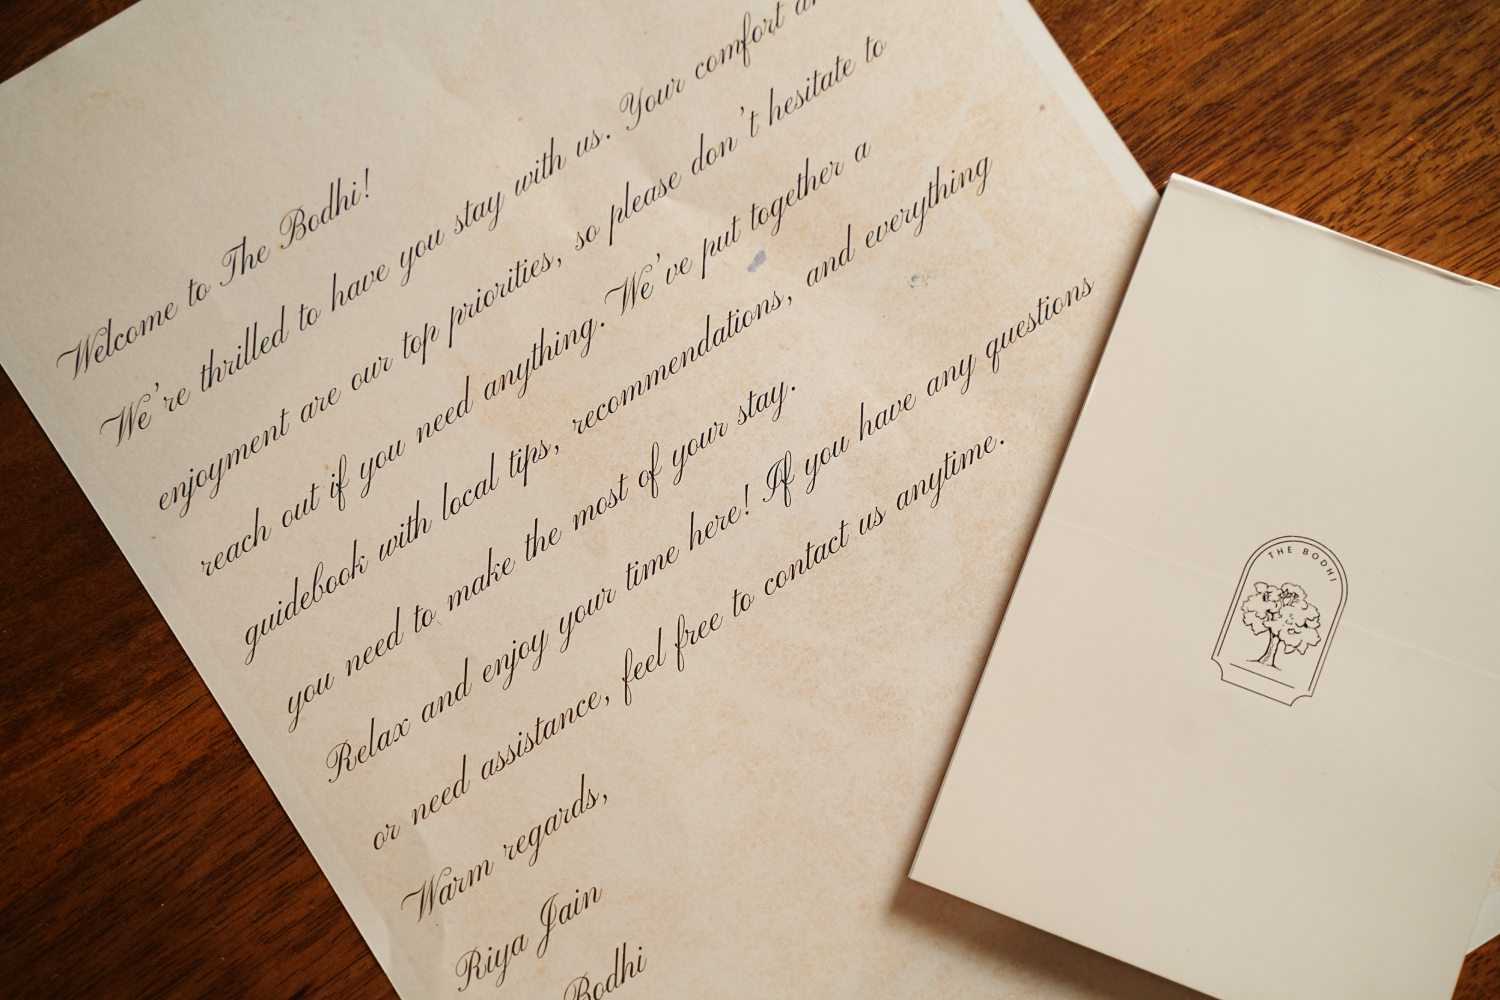 Welcome to The Bodhi!
We're thrilled to have you stay with us. Your comfort
enjoyment are our top priorities, so please don't hesitate to
reach out if you need anything. We've put together a
guidebook with local tips, recommendations, and everything
you need to make the most of your stay.
Relax and enjoy your time here! If you have any questions
or need assistance, feel free to contact us anytime.
Warm regards,
Riya Jain
Bodhi
THE BODHI